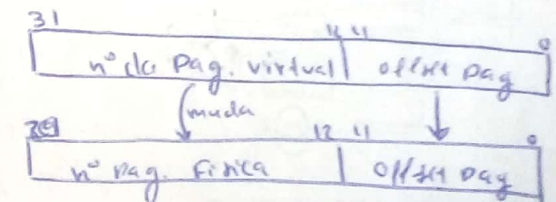 31 12 11 0
nº da Pag. virtual offset pag
muda
29 12 11 0
nº pag. Fisica offset pag